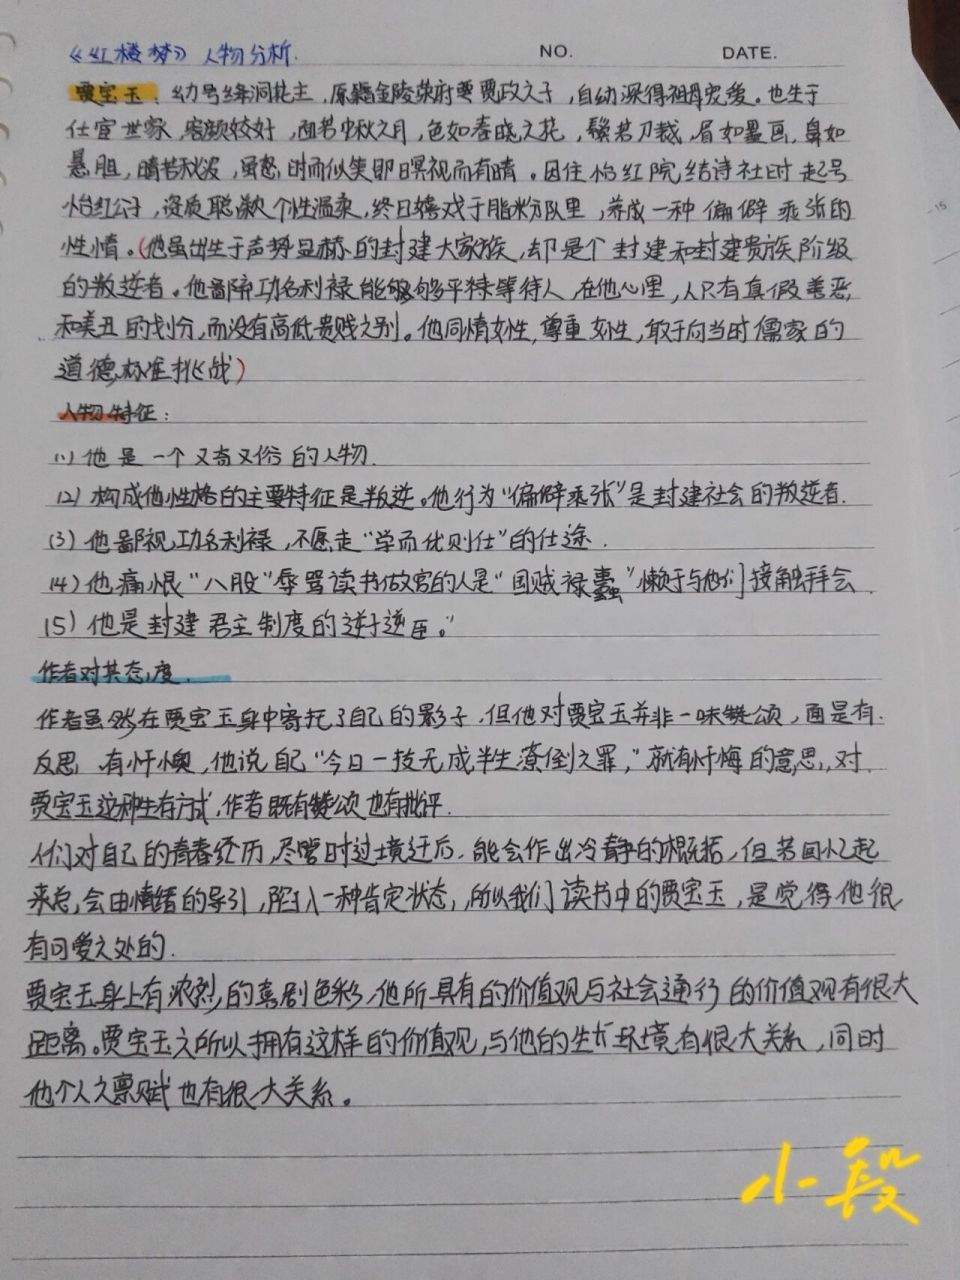 《红楼梦》人物分析.
NO. DATE.
贾宝玉：幼号绛洞花主，原籍金陵荣府贾政之子，自幼深得祖母宠爱。也生于
仕宦世家，容颜姣好，面若中秋之月，色如春晓之花，鬓若刀裁，眉如墨画，鼻如
悬胆，睛若秋波，虽怒时而似笑即瞑视而有睛。因住怡红院结诗社时起号
怡红公子，资质聪个性温柔，终日嬉戏于脂粉队里，养成一种偏僻乖张的
性情。(他虽出生于声势显赫的封建大家族，却是个封建和封建贵族阶级
的叛逆者。他鄙功名利禄能够平待等待人，在他心里，人只有真假善恶，
和美丑的划分，而没有高低贵贱之别。他同情女性，尊重女性，敢于向当时儒家的
道德标准挑战)
人物特征：
(1) 他是一个又奇又俗的人物.
(2) 构成他性格的主要特征是叛逆。他行为“偏僻乖张”是封建社会的叛逆者.
(3) 他鄙视功名利禄，不愿走“学而优则仕”的仕途.
(4) 他痛恨“八股”辱骂读书做官的人是“国贼禄蠹”懒于与他们接触拜会.
(5) 他是封建君主制度的逆子逆臣。”
作者对其态度.
作者虽然在贾宝玉身中寄托了自己的影子，但他对贾宝玉并非一味赞颂，面是有.
反思 有忏懊，他说自己“今日一技无成半生潦倒之罪，”就有忏悔的意思，对
贾宝玉这种生存方式，作者既有赞颂也有批评.
人们对自己的青春经历，尽管时过境迁后，能会作出冷静的概括，但若回忆起
来总会由情绪的导引，陷入一种肯定状态，所以我们读书中的贾宝玉，是觉得他很
有可爱之处的.
贾宝玉身上有浓烈的喜剧色彩，他所具有的价值观与社会通行的价值观有很大
距离。贾宝玉之所以拥有这样的价值观，与他的生长环境有很大关系，同时
他个人之禀赋也有很大关系。
小段